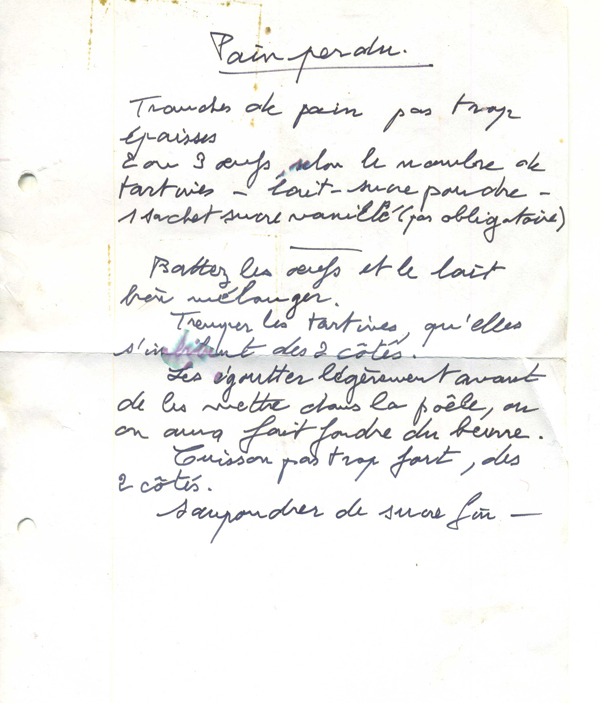 Pain perdu.
Tranches de pain pas trop
épaisses
2 ou 3 œufs, selon le nombre de
tartines - lait - sucre poudre -
1 sachet sucre vanillé (pas obligatoire)
Battez les œufs et le lait
bien mélanger.
Tremper les tartines, qu'elles
s'imbibent des 2 côtés.
Les égoutter légèrement avant
de les mettre dans la poêle, ou
on aura fait fondre du beurre.
Cuisson pas trop fort, des
2 côtés.
Saupoudrer de sucre fin -